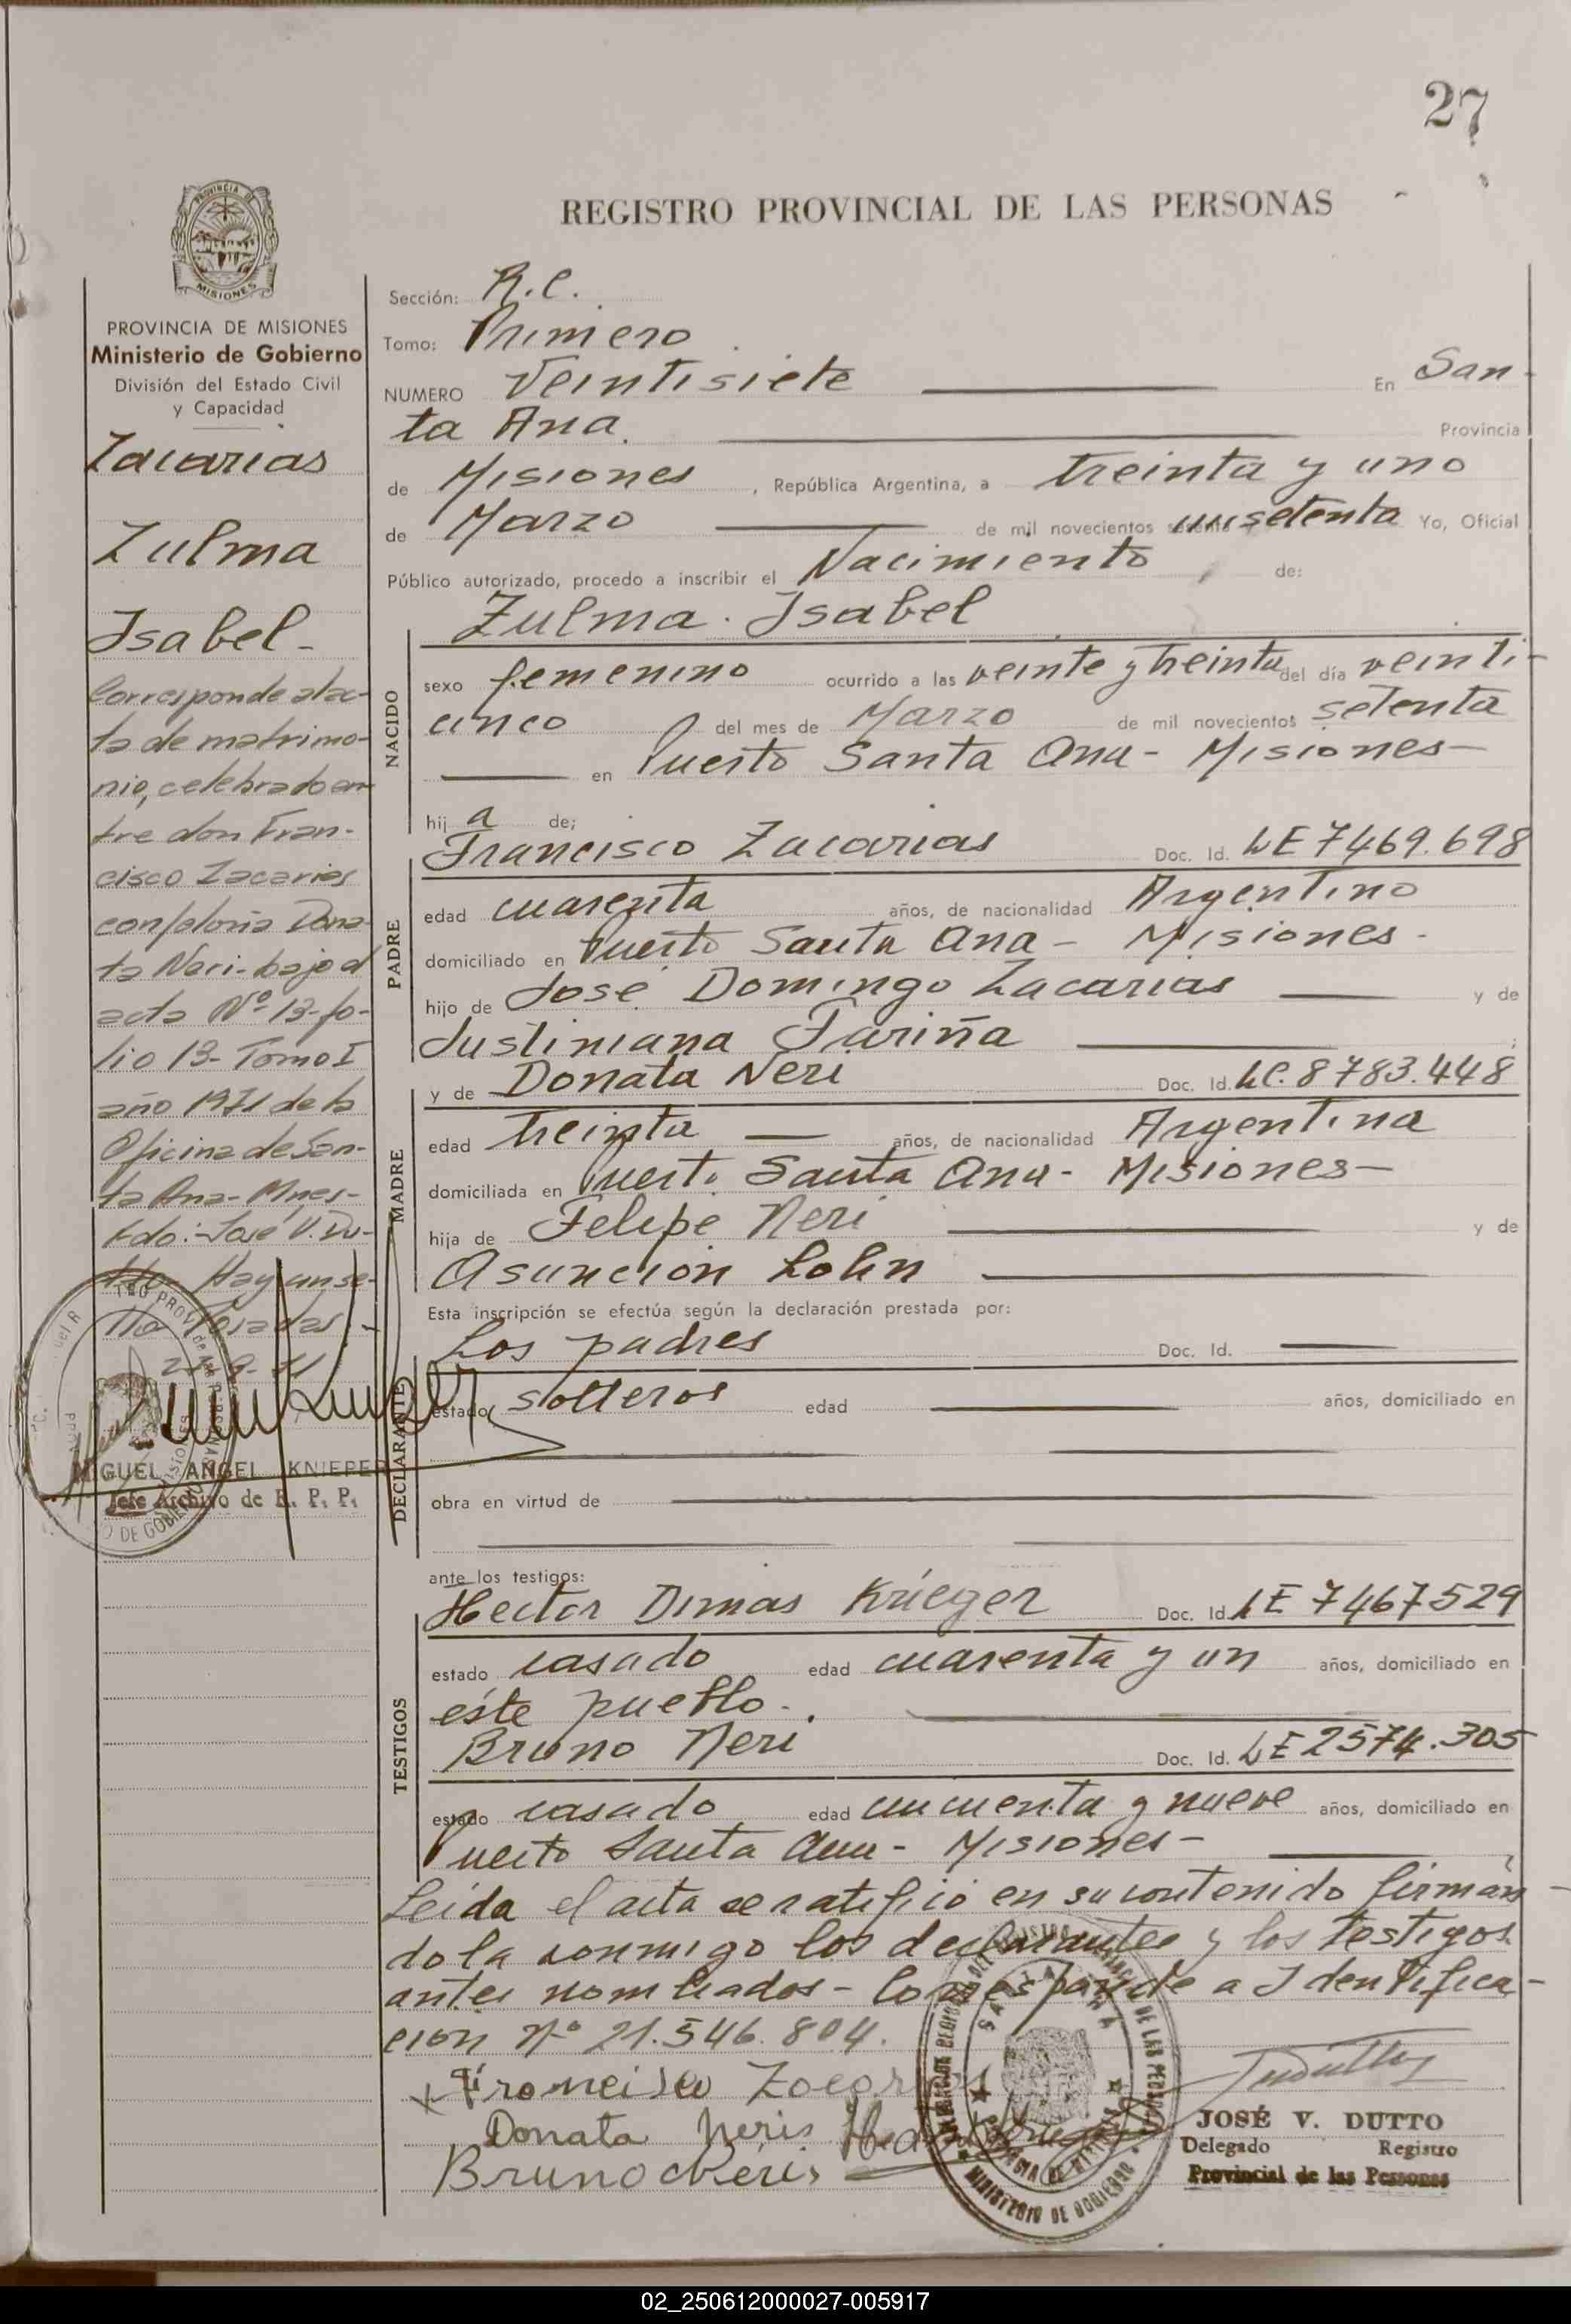 27
REGISTRO PROVINCIAL DE LAS PERSONAS
PROVINCIA DE
MISIONES
PROVINCIA DE MISIONES
Ministerio de Gobierno
División del Estado Civil
y Capacidad
Zacarias
Zulma
Isabel -
Corresponde al ac-
ta de matrimo-
nio, celebrado en-
tre don Fran-
cisco Zacarias
con doña Dona-
ta Neri - bajo el
acta Nº 13 - fo-
lio 13 - Tomo I
año 1971 de la
Oficina de San-
ta Ana - Mnes -
Fdo: - José V. Du-
tto - Hay un se-
llo Posadas, -
MIGUEL ANGEL KNIEPER
Jefe Archivo de R. P. P.
Sección: R.C.
Tomo: Primero
NUMERO Veintisiete En San-
ta Ana. Provincia
de Misiones , República Argentina, a treinta y uno
de Marzo de mil novecientos setenta Yo, Oficial
Público autorizado, procedo a inscribir el Nacimiento de:
Zulma Isabel
NACIDO
sexo femenino ocurrido a las veinte y treinta del día veinti-
cinco del mes de Marzo de mil novecientos setenta
en Puerto Santa Ana - Misiones -
hij a de;
Francisco Zacarias Doc. Id. LE 7469.698
PADRE
edad cuarenta años, de nacionalidad Argentino
domiciliado en Puerto Santa Ana - Misiones -
hijo de José Domingo Zacarias y de
Justiniana Fariña ;
y de Donata Neri Doc. Id. LC. 8783.448
MADRE
edad treinta años, de nacionalidad Argentina
domiciliada en Puerto Santa Ana - Misiones -
hija de Felipe Neri y de
Asunción
Esta inscripción se efectúa según la declaración prestada por:
Los padres Doc. Id.
DECLARANTE
estado solteros edad años, domiciliado en
obra en virtud de
ante los testigos:
Hector Dimas Krieger Doc. Id. LE 7467529
TESTIGOS
estado casado edad cuarenta y un años, domiciliado en
éste pueblo.
Bruno Neri Doc. Id. LE 2574.305
estado casado edad cincuenta y nueve años, domiciliado en
Puerto Santa Ana - Misiones -
Leída el acta se ratificó en su contenido firmán-
dola conmigo los declarantes y los testigos
antes nombrados - Corresponde a Identifica-
ción Nº 21.546.804.
x Francisco Zacarias
Donata Neris
Bruno Neris
SANTA ANA
MINISTERIO DE GOBIERNO
JOSÉ V. DUTTO
Delegado Registro
Provincial de las Personas
02_250612000027-005917